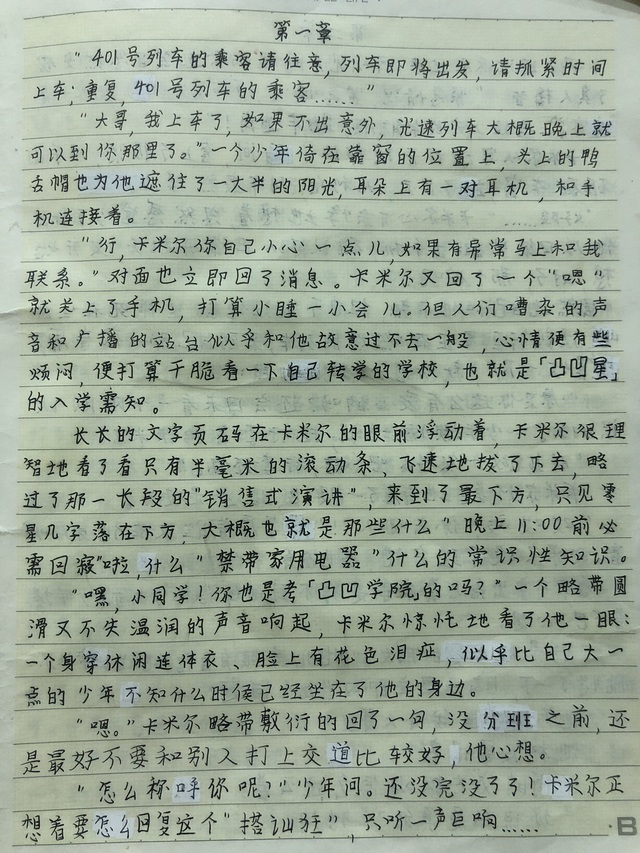 第一章
“401号列车的乘客请住意,列车即将出发,请抓紧时间
上车;重复,401号列车的乘客……”
“大哥,我上车了,如果不出意外,光速列车大概晚上就
可以到你那里了。”一个少年倚在靠窗的位置上,头上的鸭
舌帽也为他遮住了一大半的阳光,耳朵上有一对耳机,和手
机连接着。
“行,卡米尔你自己小心一点儿,如果有异常马上和我
联系。”对面也立即回了消息。卡米尔又回了一个“嗯”
就关上了手机,打算小睡一小会儿。但人们嘈杂的声
音和广播的站台似乎和他故意过不去一般,心情便有些
烦闷,便打算干脆看一下自己转学的学校,也就是「凸凹星」
的入学需知。
长长的文字页码在卡米尔的眼前浮动着,卡米尔很理
智地看了看只有半毫米的滚动条、飞速地拔了下去,略
过了那一长段的“销售式演讲”,来到了最下方,只见零
星几字落在下方,大概也就是那些什么“晚上11:00前必
需回寝”啦,什么“禁带家用电器”什么的常识性知识。
“嘿,小同学!你也是考「凸凹学院」的吗?”一个略带圆
滑又不失温润的声音响起,卡米尔惊忙地看了他一眼:
一个身穿休闲连体衣、脸上有花色泪症,似乎比自己大一
点的少年不知什么时侯已经坐在了他的身边。
“嗯。”卡米尔略带敷衍的回了一句,没分班之前,还
是最好不要和别人打上交道比较好,他心想。
“怎么称呼你呢?”少年问。还没完没了了!卡米尔正
想着要怎么回复这个“搭讪狂”,只听一声巨响……
B